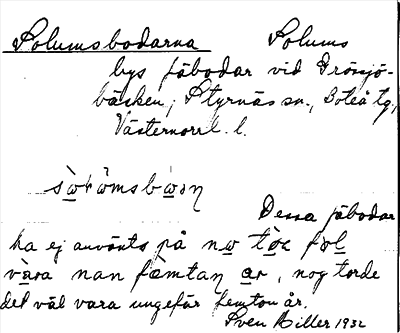 Solumsbodarna Solums
bys fäbodar vid Grössjö-
bäcken, Styrnäs sn., Boteå tg,
Västernorrl. l.
Dessa fäbodar
ha ej använts på
nan fèmtan , nog torde
det väl vara ungefär femton år.
Sven Hiller 1932